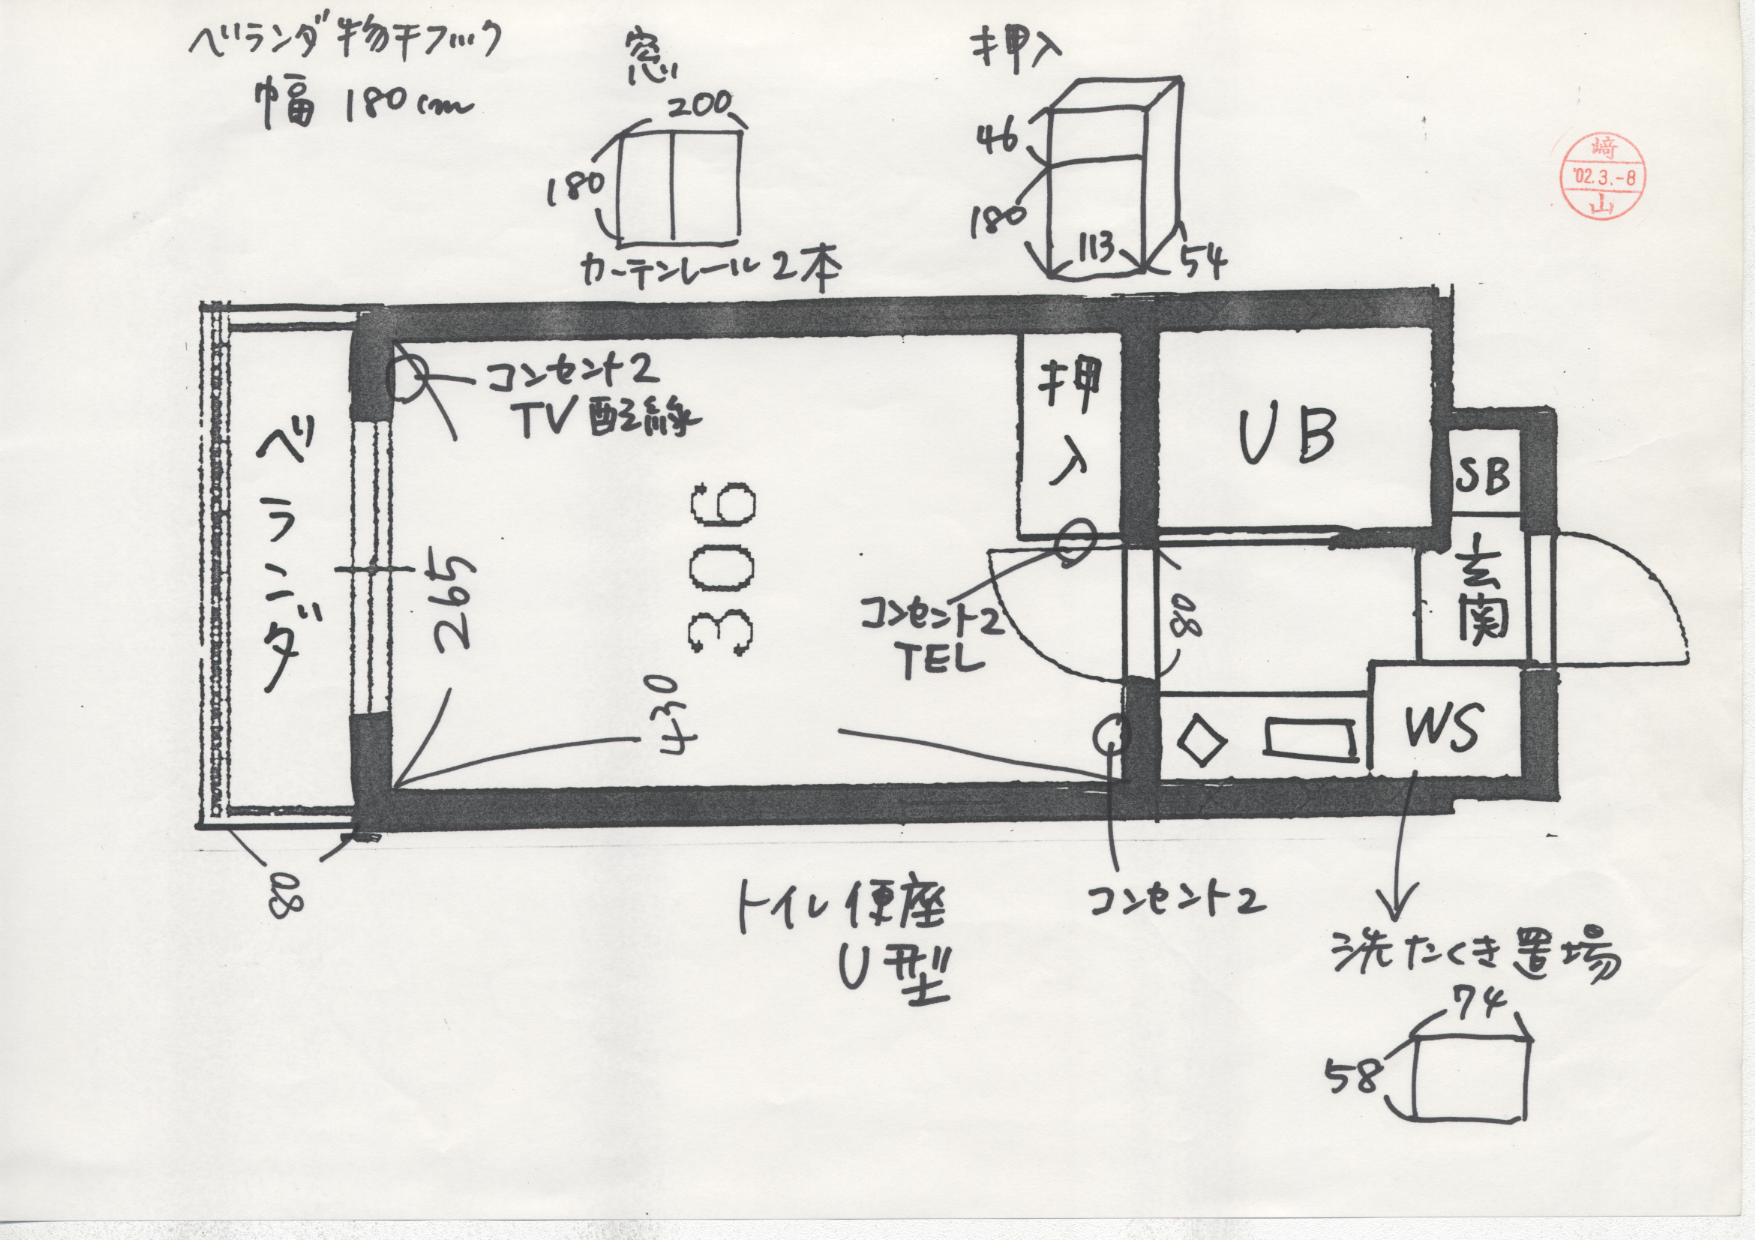 ベランダ物干フック
幅 180cm
窓
200
180
カーテンレール2本
押入
46
180
113
54
崎
'02.3.-8
山
コンセント2
TV配線
ベランダ
265
306
430
押入
コンセント2
TEL
80
UB
SB
玄関
WS
80
トイレ便座
U型
コンセント2
洗たくき置場
74
58